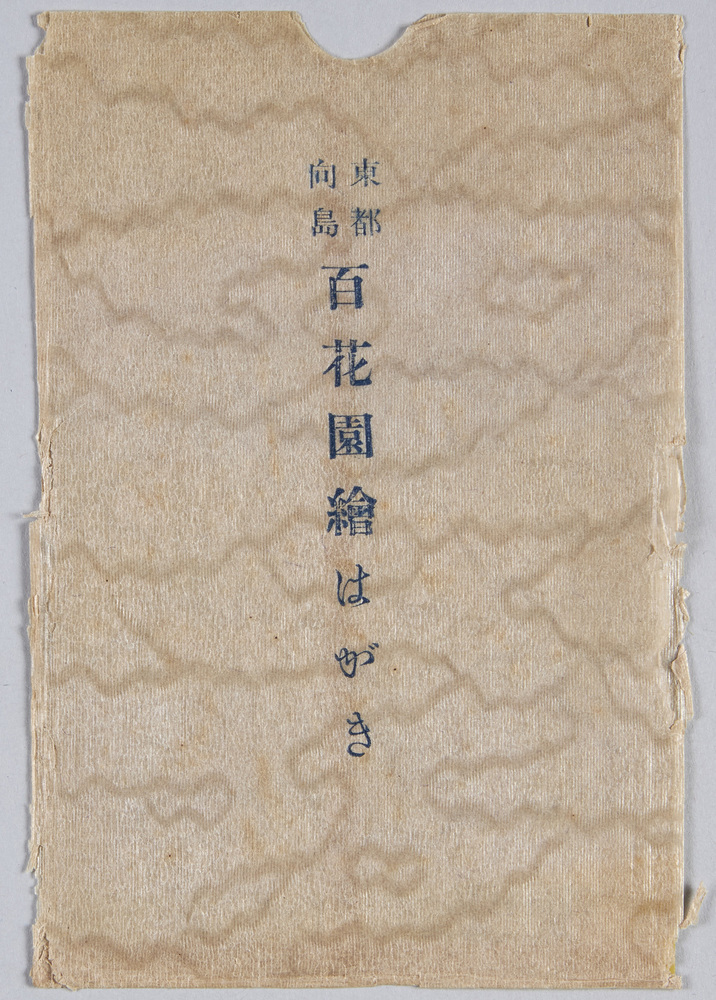 東都
向島
百花園繪はがき